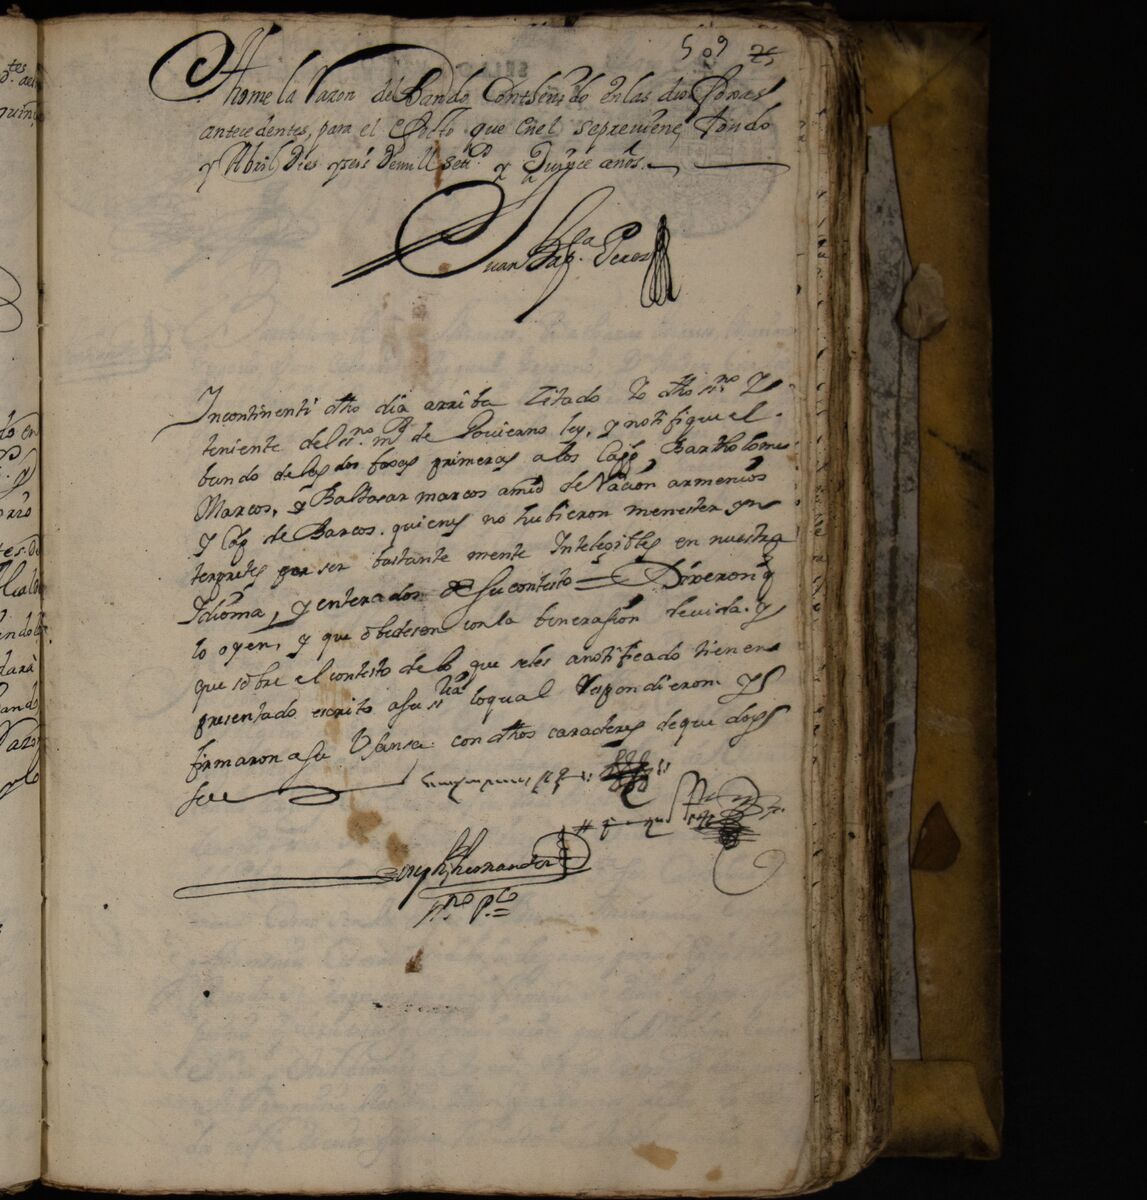 509 25
Thome la Razon del Bando Conthenido en las dos fojas
antecedentes, para el efecto que en el sepreviene, tondo
y Abril Dies yseis demill sett.os y Quinse años.
Juan Bap.ta Perez
Incontinenti dho dia arriba Citado Yo dho ss.no Y
teniente del ss.no m.r de Govierno ley, y notifique el
bando de las dos foxas primeras a los Capp. Bartholome
Marcos, y Baltasar marcos amvos de Nación armenios
y Cap. de Barcos. quienes no hubieron menester yn
terpretes por ser bastante mente Inteligibles en nuestra
Idioma, y enterados de su contesto = Dixeron q
lo oyen, y que obedesen con la beneración devida. y
que sobre el contesto de lo que seles a notificado tienen
presentado escrito a su ss.ria loqual Respondieron Y
firmaron a su Vsansa con dhos caracteres de que doy
fee
Joseph Hernandez
ss.no p.co